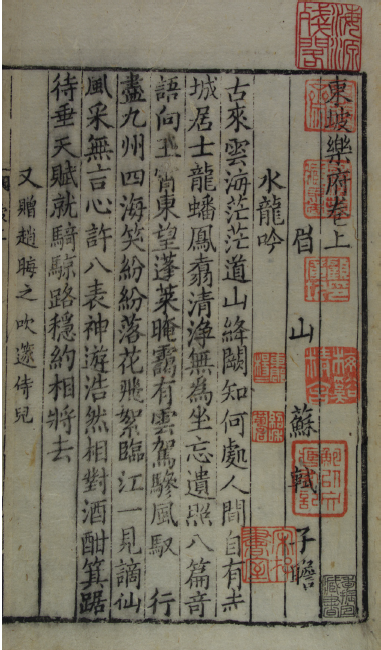 海源殘閣
東坡樂府卷上
眉山 蘇軾 子瞻
水龍吟
古來雲海茫茫道山絳闕知何處人間自有赤
城居士龍蟠鳳翥清淨無為坐忘遺照八篇奇
語向玉霄東望蓬萊晻靄有雲駕驂風馭 行
盡九州四海笑紛紛落花飛絮臨江一見謫仙
風采無言心許八表神游浩然相對酒酣箕踞
待垂天賦就騎鯨路穩約相將去
又贈趙晦之吹篴侍兒